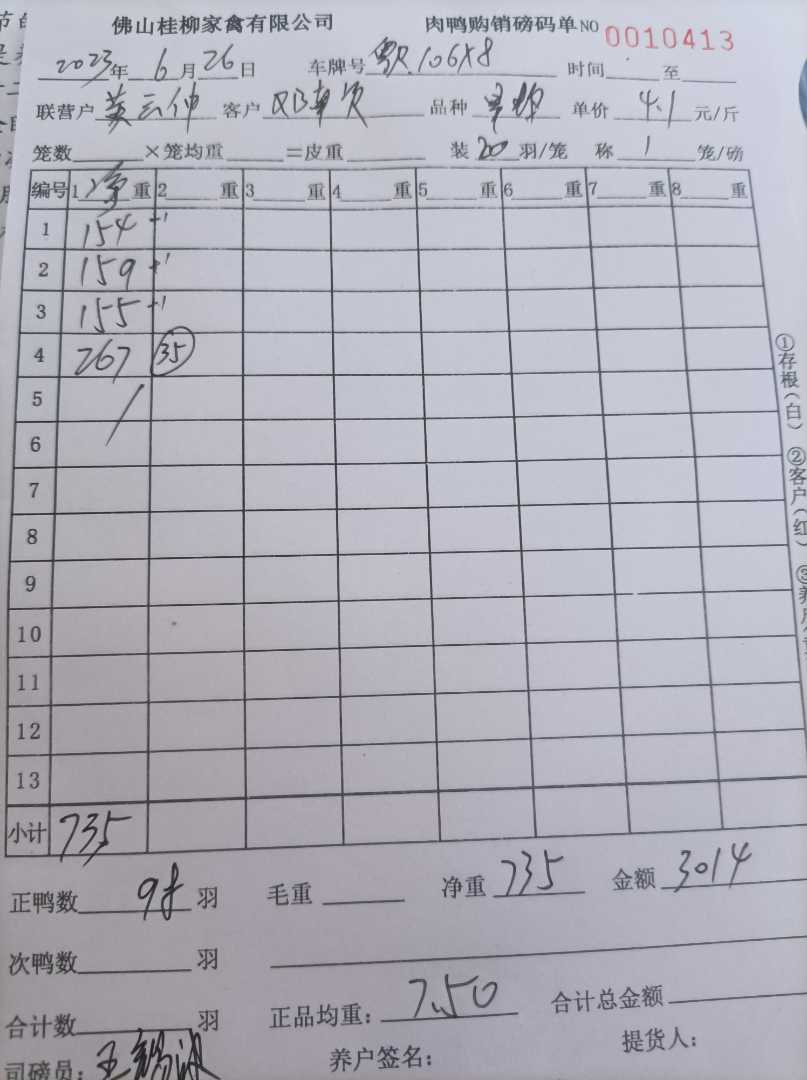 佛山桂柳家禽有限公司 肉鸭购销磅码单 NO 0010413
2023年 6月 26日 车牌号 粤R.106X8 时间 至
联营户 客户 品种 单价 4.1 元/斤
笼数 ×笼均重 =皮重 装 20 羽/笼 称 1 笼/磅
编号 1 净 重 2 重 3 重 4 重 5 重 6 重 7 重 8 重
1 154 +1
2 159 +1
3 155 +1
4 267 35
5
6
7
8
9
10
11
12
13
小计 735
正鸭数 98 羽 毛重 净重 735 金额 3014
次鸭数 羽
合计数 羽 正品均重: 7.50 合计总金额
司磅员: 养户签名: 提货人:
①存根(白) ②客户(红) ③